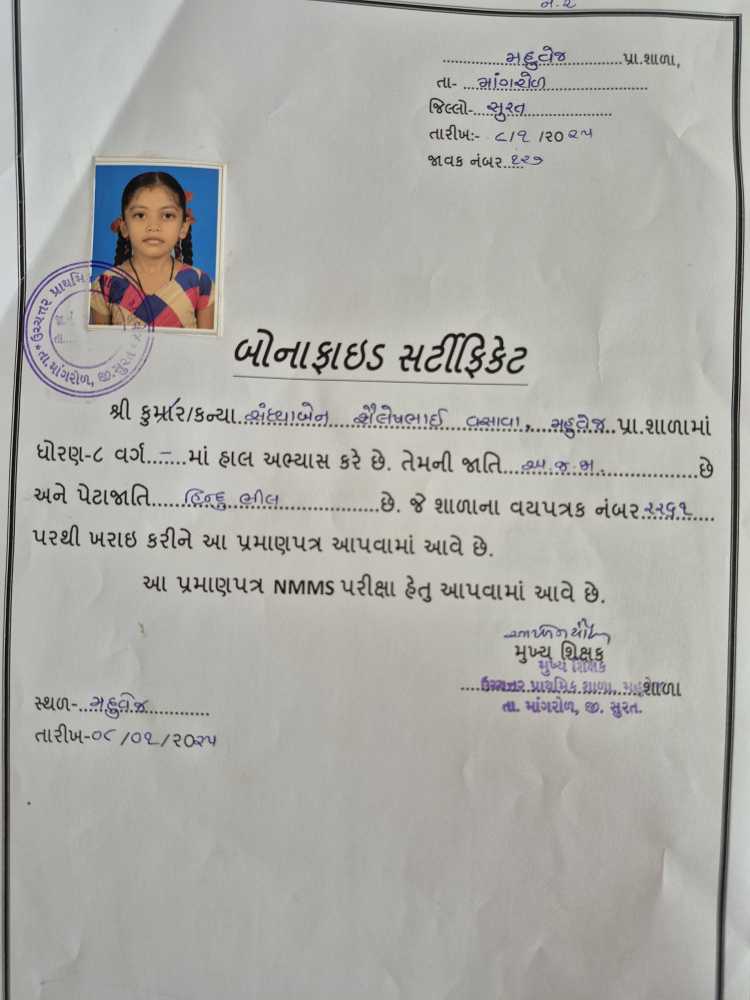 નં.૨
મહુવેજ પ્રા.શાળા,
તા- માંગરોળ
જિલ્લો- સુરત
તારીખ:- ૮/૧ /૨૦૨૫
જાવક નંબર ૧૨૭
ઉચ્ચત્તર પ્રાથમિ
તા. માંગરોળ, જી. સુરત
બોનાફાઇડ સર્ટીફિકેટ
શ્રી કુમાર/કન્યા સંધ્યાબેન શૈલેષભાઈ વસાવા, મહુવેજ પ્રા.શાળામાં
ધોરણ-૮ વર્ગ - માં હાલ અભ્યાસ કરે છે. તેમની જાતિ અ.જ.જા. છે
અને પેટાજાતિ હિન્દુ ભીલ છે. જે શાળાના વયપત્રક નંબર ૨૨૬૧
પરથી ખરાઇ કરીને આ પ્રમાણપત્ર આપવામાં આવે છે.
આ પ્રમાણપત્ર NMMS પરીક્ષા હેતુ આપવામાં આવે છે.
મુખ્ય શિક્ષક
મુખ્ય શિક્ષક
ઉચ્ચત્તર પ્રાથમિક શાળા, શાળા
તા. માંગરોળ, જી. સુરત.
સ્થળ- મહુવેજ
તારીખ-૦૮ /૦૧/૨૦૨૫